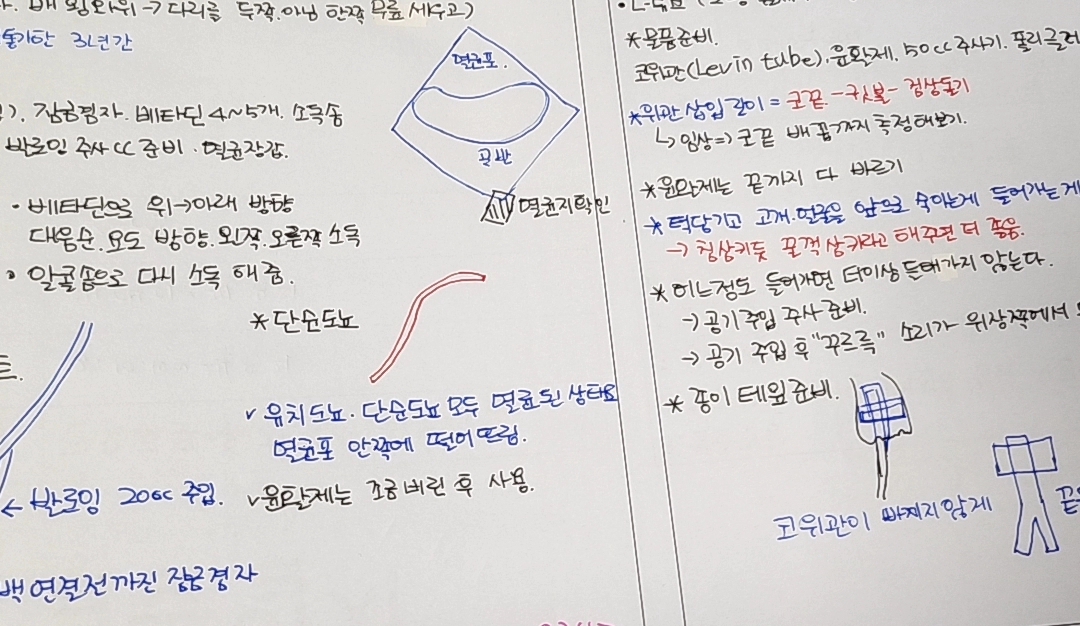 배횡와위 → 다리를 두쪽.아님 한쪽 무릎 세우고)
3년간
멸균포.
곡반
멸균지확인
겸자. 베타딘 4~5개. 소독솜
발로인 주사 cc 준비. 멸균장갑.
• 베타딘으로 위→아래 방향
대음순. 요도 방향. 왼쪽. 오른쪽 소독
• 알콜솜으로 다시 소독 해줌.
* 단순도뇨
트.
v 유치도뇨. 단순도뇨 모두 멸균된 상태요
멸균포 안쪽에 떨어뜨림.
← 발로잉 20cc 주입.
v 윤활제는 조금 버린 후 사용.
백 연결전까진 잠금겸자
* 물품준비.
코위관(Levin tube). 윤활제. 50cc 주사기. 풀리글러
* 위관 삽입 길이 = 코끝 - 귓불 - 검상돌기
↳ 임상⇒ 코끝 배꼽까지 측정해보기.
* 윤활제는 끝까지 다 바르기
* 턱당기고 고개.얼굴을 앞으로 숙이는게 들어가는게
→ 침삼키듯 꼴깍 삼키라고 해주면 더 좋음.
* 어느정도 들어가면 더이상 들어가지 않는다.
→ 공기주입 주사 준비.
→ 공기 주입 후 "꾸르륵" 소리가 위상쪽에서
* 종이 테잎 준비.
코위관이 빠지지 않게